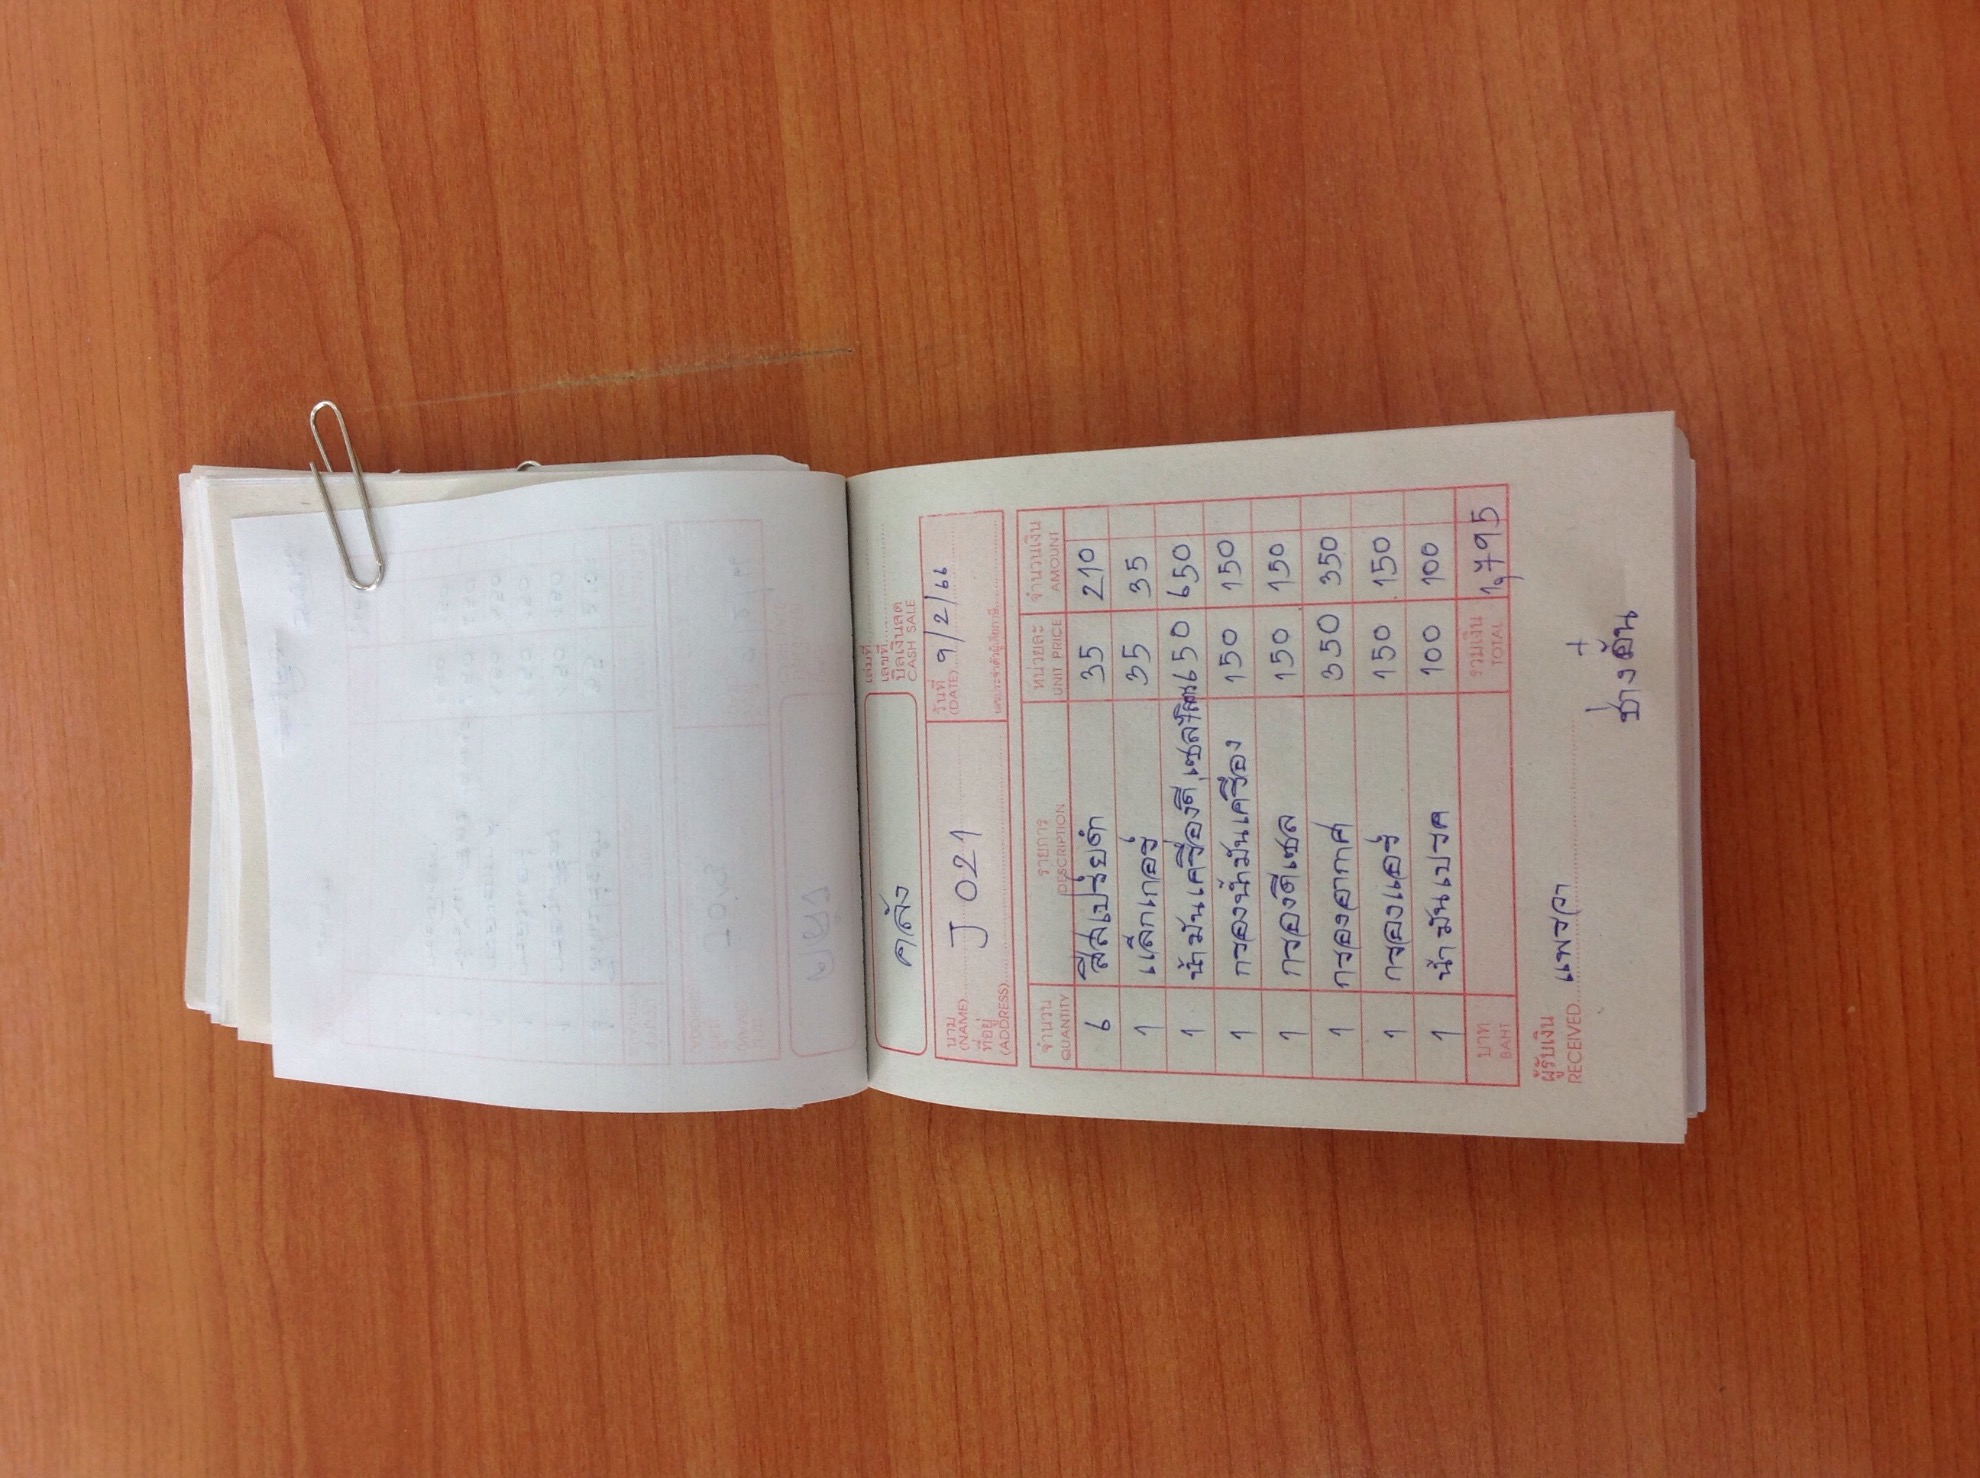 เล่มที่
เลขที่
คลัง บิลเงินสด
CASH SALE
นาม (NAME) J 021 วันที่ (DATE) 9/2/66
ที่อยู่ (ADDRESS) เลขประจำตัวผู้เสียภาษี
จำนวน รายการ หน่วยละ จำนวนเงิน
QUANTITY DESCRIPTION UNIT PRICE AMOUNT
6 สีสเปรย์ดำ 35 210
1 แล็กเกอร์ 35 35
1 น้ำมันเครื่องดีเซล 650 650
1 กรองน้ำมันเครื่อง 150 150
1 กรองดีเซล 150 150
1 กรองอากาศ 350 350
1 กรองแอร์ 150 150
1 น้ำมันเบรค 100 100
บาท รวมเงิน 1,795
BAHT TOTAL
ผู้รับเงิน
RECEIVED แพรวา
ช่าง